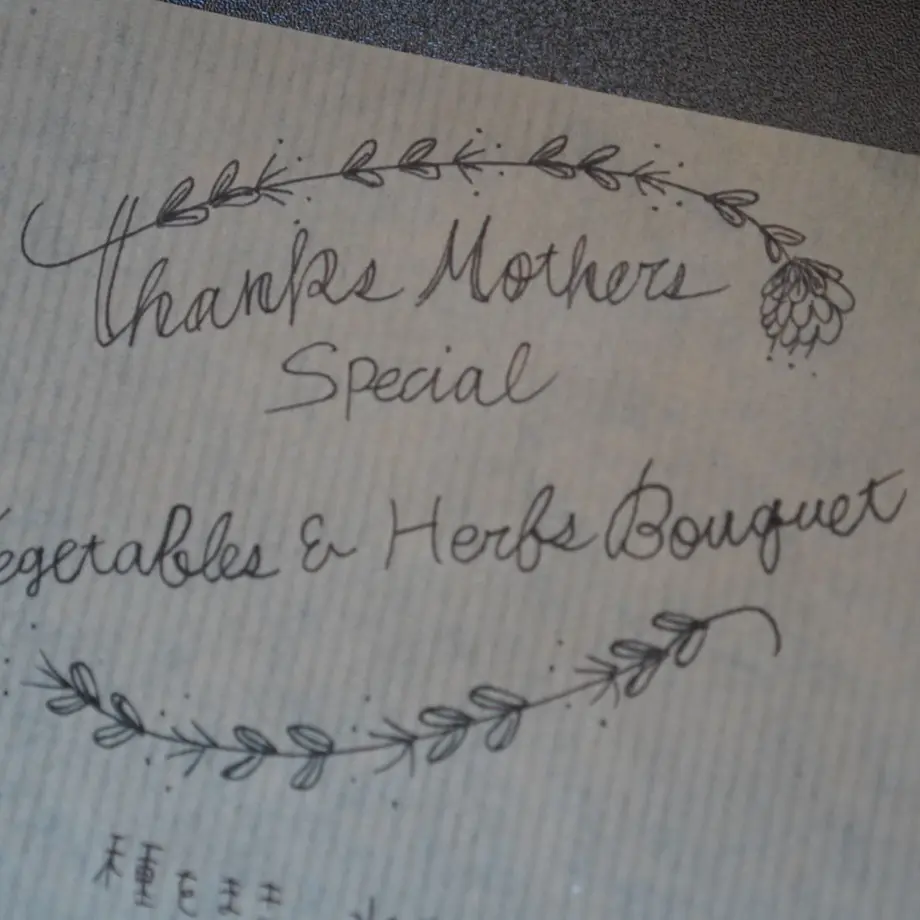 Thanks Mothers
Special
Vegetables & Herbs Bouquet
種をまき